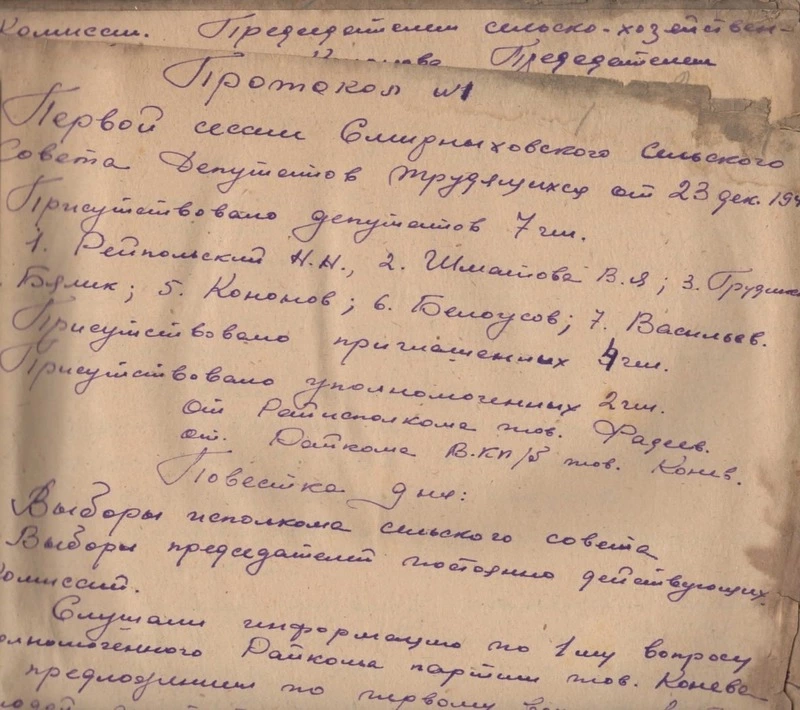 Комиссии. Председателем сельско-хозяйствен-
Председателем
Протокол №1
Первой сессии Смирныховского сельского
Совета Депутатов трудящихся от 23 дек. 194
Присутствовало депутатов 7 чл.
1. Рейпольский Н.Н., 2. Шматова В.Я; 3. Грудин
Бялик; 5. Кононов; 6. Белоусов; 7. Васильев.
Присутствовало приглашенных 4 чл.
Присутствовало уполномоченных 2 чл.
От Райисполкома тов. Фадеев.
от. Райкома В.КП/б тов. Конев.
Повестка дня:
Выборы исполкома сельского совета
Выборы председателей постоянно действующих
Комиссий.
Слушали информацию по 1му вопросу
олномоченного Райкома партии тов. Конева
предложили по первому